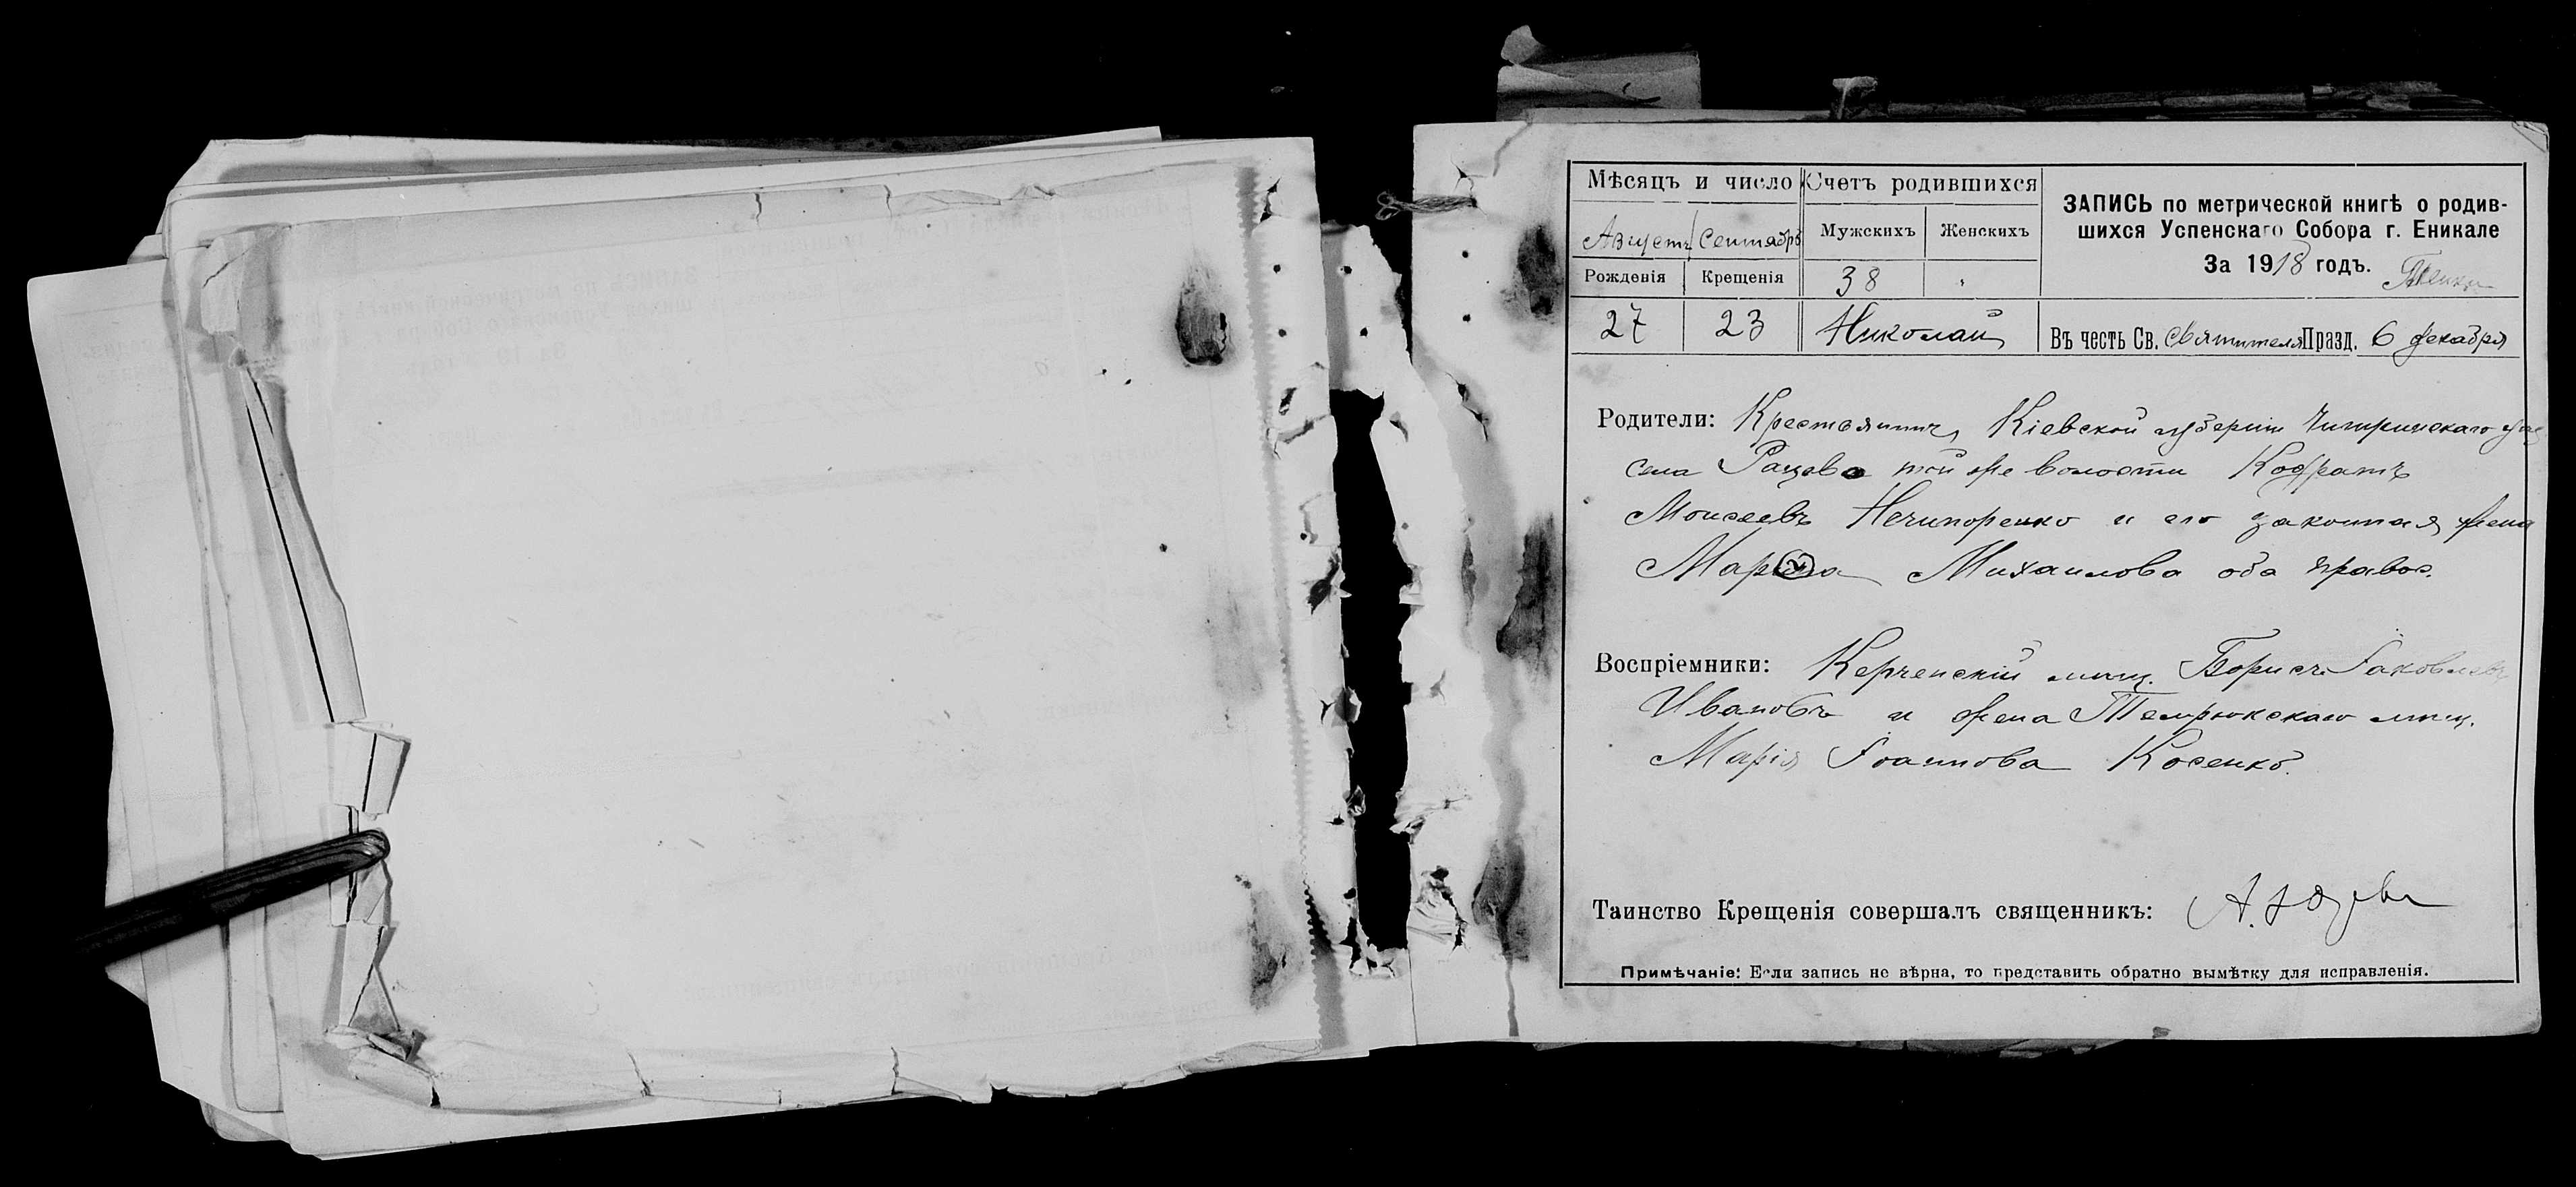 Мѣсяцъ и число
Счетъ родившихся
Августъ
Сентябрь
Мужскихъ
Женскихъ
Рожденія
Крещенія
38
"
27
23
Николай
ЗАПИСЬ по метрической книгѣ о родив-
шихся Успенскаго Собора г. Еникале
За 1918 годъ.
Въ честь Св. Святителя Празд. 6 декабря
Родители: Крестьянинъ Кіевской губерніи Чигиринскаго
села Рацево той же волости Кодратъ
Моисеевъ Нечипоренко и его законная жена
Михаилова оба правос.
Воспріемники: Керченскій мѣщ. Борисъ Іаковлевъ
Ивановъ и жена Темрюкскаго мѣщ.
Марія Іоаннова Косенко.
Таинство Крещенія совершалъ священникъ: А.
Примѣчаніе: Если запись не вѣрна, то представить обратно вымѣтку для исправленія.